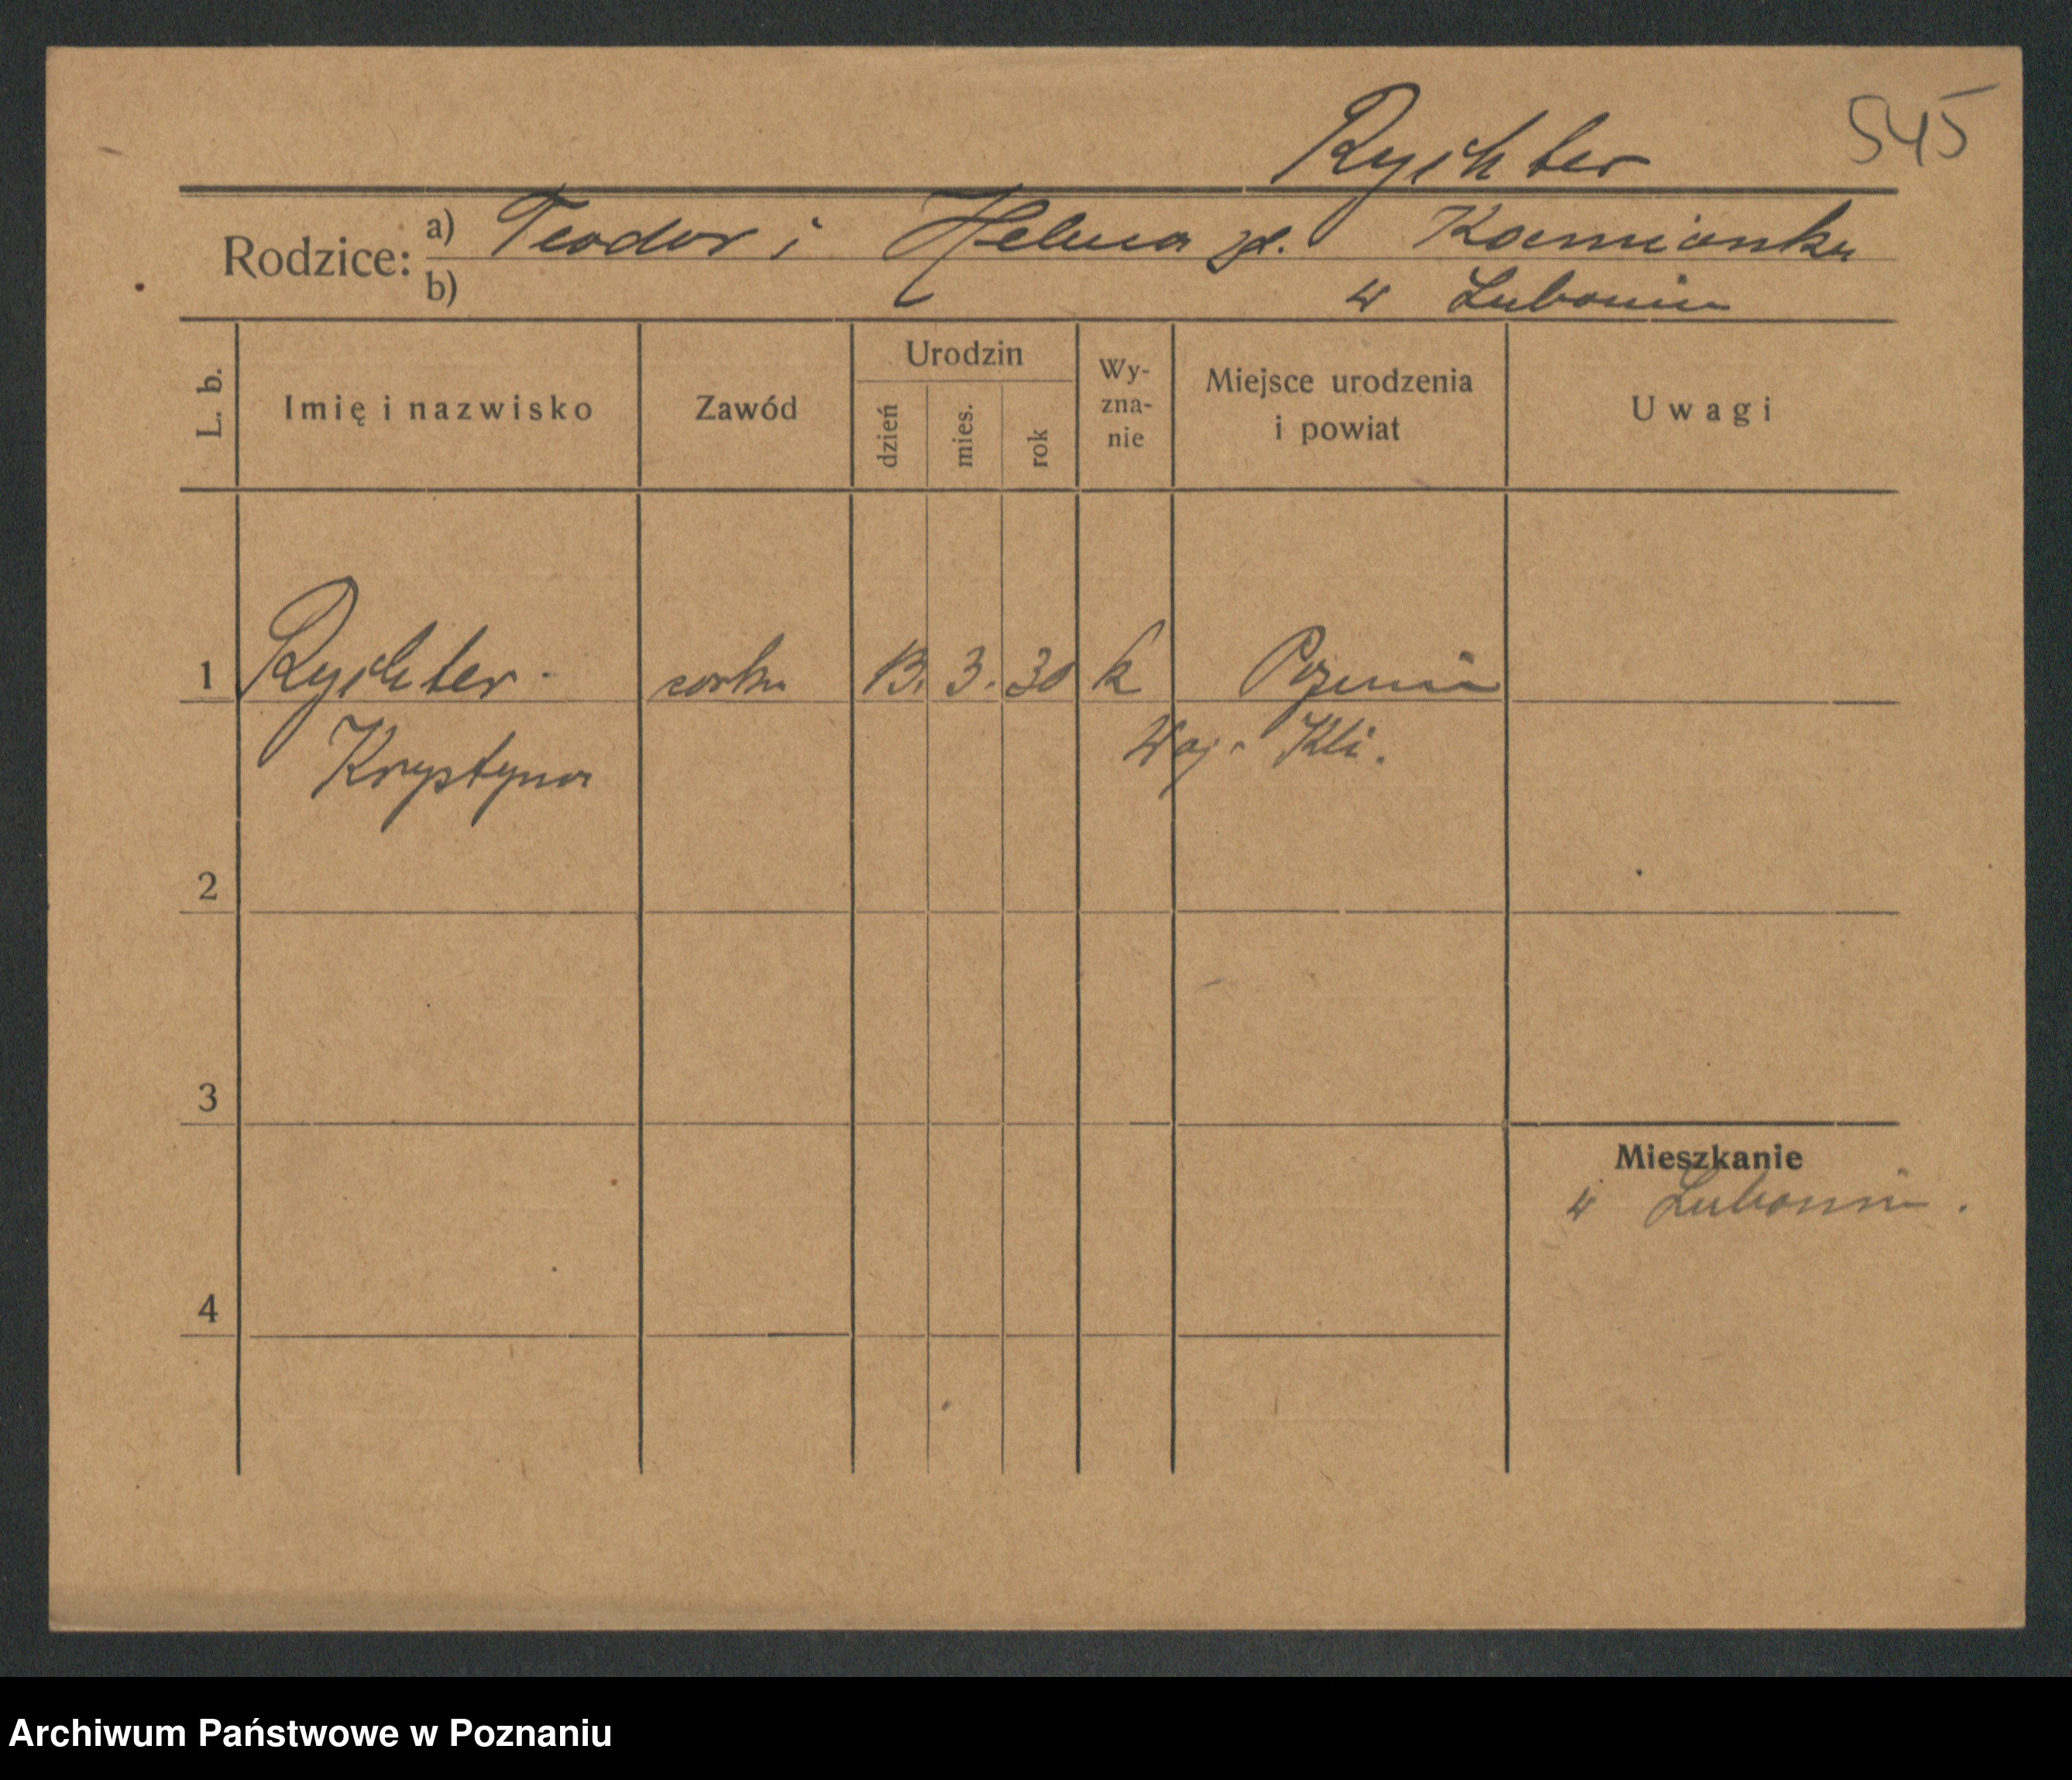 545
Rychter
Rodzice: a) Teodor i Helena zd. Kaemianka
b) w Luboniu
L. b. Imię i nazwisko Zawód Urodzin dzień mies. rok Wy-zna-nie Miejsce urodzenia i powiat Uwagi
1 Rychter - corka 13. 3. 30 k Poznań
Krystyna Woj.
2
3
Mieszkanie
w Luboniu.
4
Archiwum Państwowe w Poznaniu